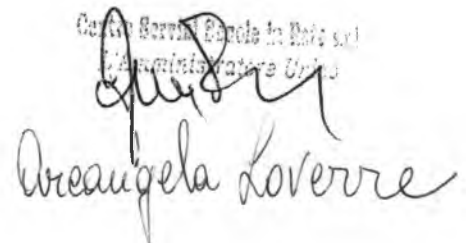 Centro Servizi Scuole in Rete s.r.l.
L'Amministratore Unico
Arcangela Loverre